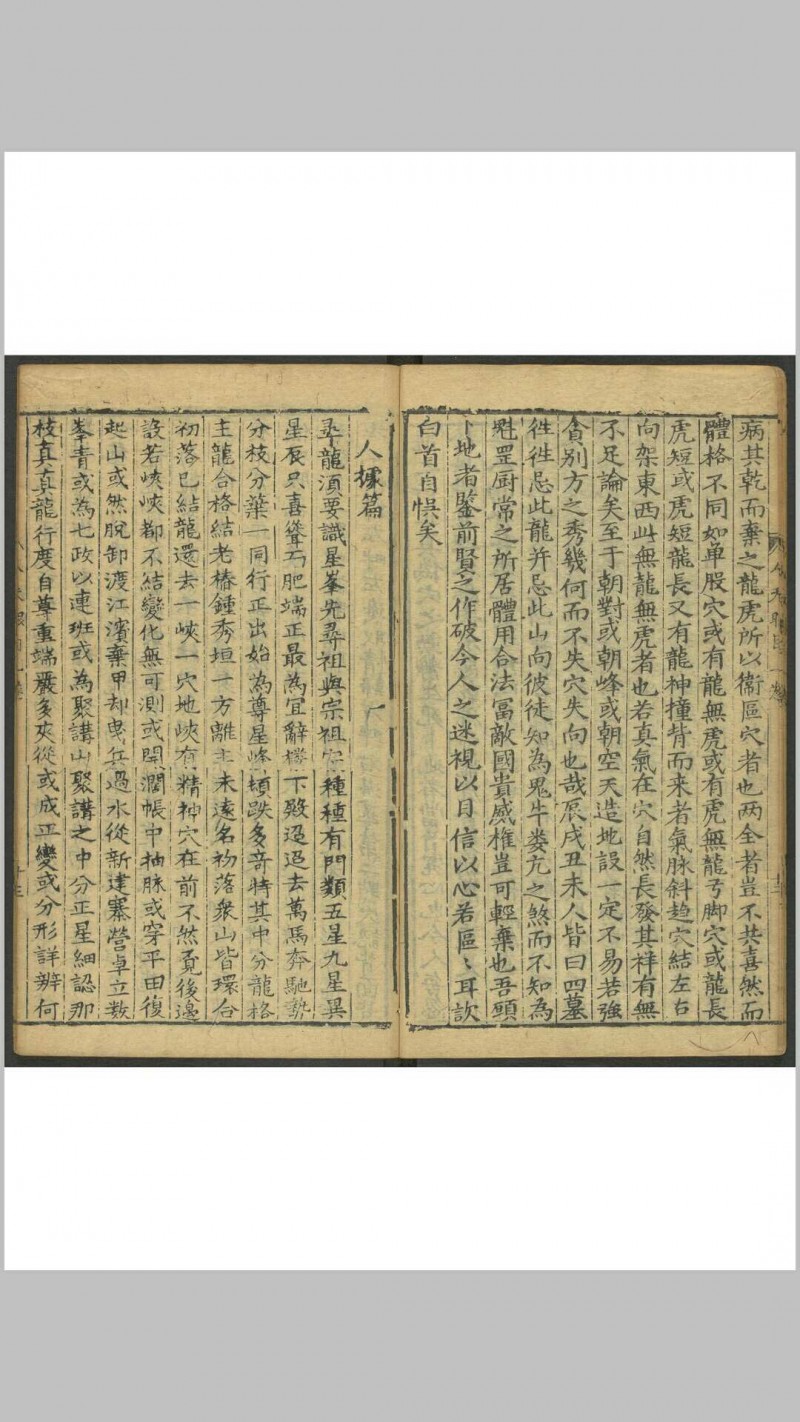 病其乾而棄之龍虎所以衛區穴者也两全者豈不共喜然而
體格不同如单股穴或有龍無虎或有虎無龍弓脚穴或龍長
虎短或虎短龍長又有龍神撞背而来者氣脉斜趋穴結左右
向架東西此無龍無虎者也若真氣在穴自然長發其祥有無
不足論矣至于朝對或朝峰或朝空天造地設一定不易若強
貪别方之秀幾何而不失穴失向也哉辰戌丑未人皆曰四墓
徃徃忌此龍并忌此山向彼徒知為鬼牛娄亢之煞而不知為
魁罡厨常之所居體用合法冨敵國貴威權豈可輕棄也吾願
卜地者鑒前賢之作破今人之迷視以目信以心若區〻耳食
白首自悞矣
人據篇
尋龍湏要識星峯先尋祖與宗祖宗種種有門類五星九星異
星辰只喜聳㒵肥端正最為宜辭樓下殿迢迢去萬馬奔馳勢
分枝分葉一同行正出始為尊星峰頓跌多竒特其中分龍格
主龍合格結老椿鍾秀垣一方離主未遠名初落衆山皆環合
初落已結龍還去一峽一穴地峽有精神穴在前不然覔後邊
設若峽峽都不結變化無可測或開濶帳中抽脉或穿平田復
起山或然脫卸渡江濱棄甲却曳兵過水從新建寨營卓立数
峯青或為七政以連班或為聚講山聚講之中分正星細認那
枝真真龍行度自尊重端嚴多夾從或成正變或分形詳辨何